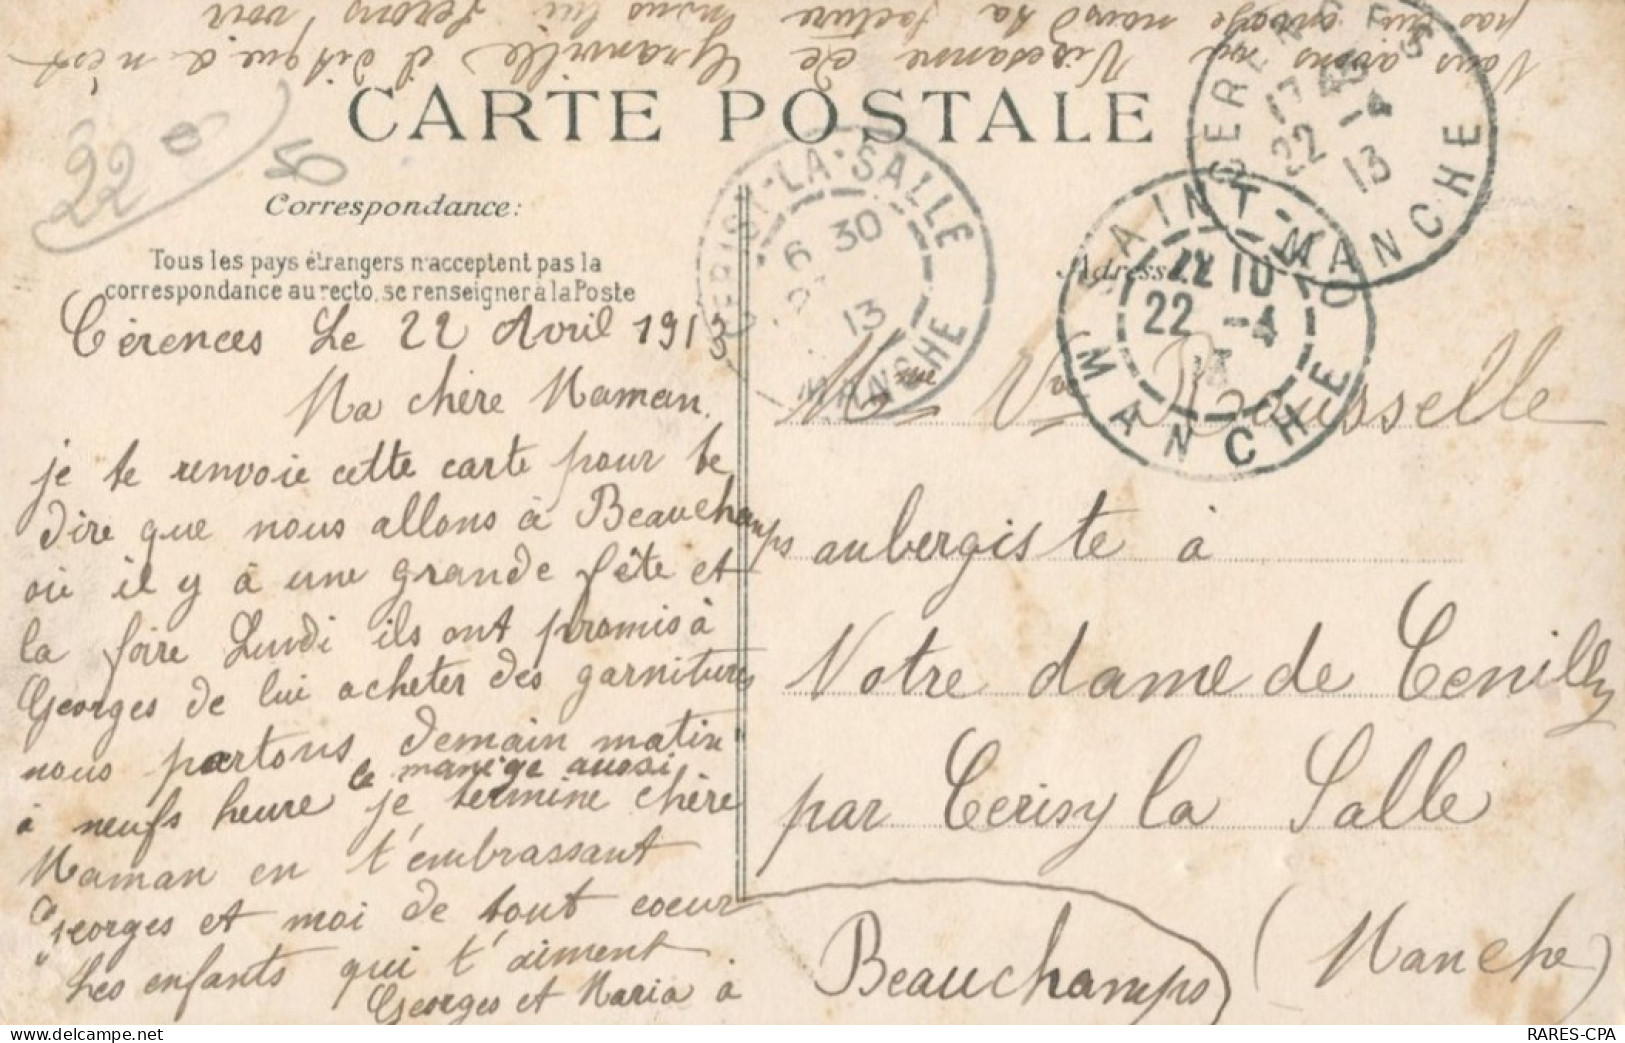 Nous avons vu Vissesanne de Granville il dit que a n'est
pas lui envoyé nous sa facture nous lui ferons voir
CARTE POSTALE
220
50
Correspondance:
Tous les pays étrangers n'acceptent pas la
correspondance au recto, se renseigner à la Poste
Cérences Le 22 Avril 1913
Ma chère Maman.
je te renvoie cette carte pour te
dire que nous allons à Beauchamps
où il y à une grande fête et
la foire Lundi ils ont promis à
Georges de lui acheter des garnitures
nous partons demain matin
à neufs heure le manège aussi je termine chère
Maman en t'embrassant
Georges et moi de tout coeur
Les enfants qui t'aiment
Georges et Maria à
Beauchamps
Adresse
Mme Ve Rousselle
aubergiste à
Notre dame de Cenilly
par Cerisy la Salle
(Manche)
CERISY-LA-SALLE
6 30
13
MANCHE
SAINT-LO
22 10
22 -4
MANCHE
CERENCES
17
22 -4
13
MANCHE
delcampe.net
RARES-CPA